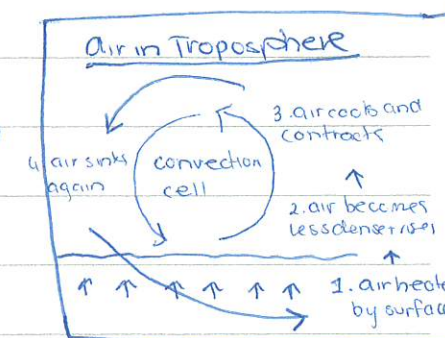 air in Troposphere
3. air cools and
contracts
4. air sinks
again
convection
cell
2. air becomes
less dense rises
1. air heate
by surfac